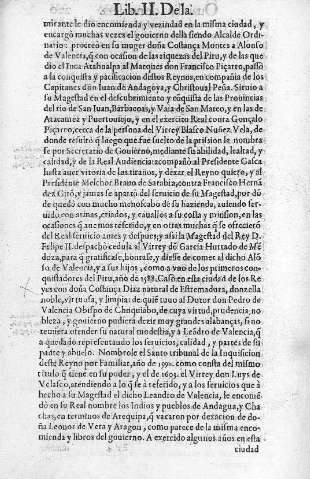 Lib. II. De la
mirante le dio encomienda y vezindad en la misma ciudad, y
encargò muchas vezes el gouierno della siendo Alcalde Ordi-
nario: procreò en su muger doña Costança Montes a Alonso
de Valencia, q̃ con ocasion de las riquezas del Piru, y de las que
dio el Inca Atahualpa al Marques don Francisco Piçarro, passò
a la conquista y pacificacion destos Reynos, en compañia de los
Capitanes don Iuan de Andagoya, y Christoual Peña. Siruio a
su Magestad en el descubrimiento y cõquista de las Prouincias
del rio de San Iuan, Barbacoas, y Vaìa de San Mateo, y en las de
Atacamez y Puertouiejo, y en el exercito Real contra Gonçalo
Piçarro, cerca de la persona del Virrey Blasco Nuñez Vela, de
donde resultò q̃ luego que fue suelto de la prision le nombra
se por Secretario de Gouierno, mediante su abilidad, lealtad, y
calidad, y de la Real Audiencia: acompañò al Presidente Gasca
hasta auer vitoria de los tiranos, y dexar el Reyno quieto, y al
Presidente Melchor Brauo de Sarabia, cõtra Francisco Hernã
dez Girõ, y jamas se apartò del seruicio de su Magestad, por dõ
de quedò con mucho menoscabo de su hazienda, auiendo ser-
uido con armas, criados, y cauallos a su costa y minsion, en las
ocasiones q̃ auemos referido, y en otras muchas q̃ se ofrecierõ
del Real seruicio antes y despues, y assi la Magestad del Rey D.
Felipe II. despachò cedula al Virrey dõ Garcia Hurtado de Mẽ
doza, para q̃ gratificase, honrase, y diesse de comer al dicho Alõ
so de Valencia, y a sus hijos, como a vno de los primeros con-
quistadores del Piru, año de 1588. Casò en esta ciudad de los Re
yes con doña Costança Diaz natural de Estremadura, donzella
noble, virtuosa, y limpia: de quiẽ tuuo al Dotor don Pedro de
Valencia Obispo de Chuquiabo, de cuya virtud, prudencia, no
bleza, y gouierno pudiera dezir muy grandes alabanças, si no
temiera ofender su natural modestia, y a Leãdro de Valencia, q̃
a quedado representando los seruicios, calidad, y partes de su
padre y abuelo. Nombrole el Santo tribunal de la Inquisicion
deste Reyno por Familiar, año de 1590. como consta del mismo
titulo q̃ tiene en su poder, y el de 1605. el Virrey don Luys de
Velasco, atendiendo a lo q̃ se à referido, y a los seruicios que à
hecho a su Magestad el dicho Leandro de Valencia, le encomẽ
dò en su Real nombre los Indios y pueblos de Andagua, y Cha
chas, en terminos de Arequipa, q̃ vacaron por dexacion de do-
ña Leonor de Vera y Aragon, como parece de la misma enco-
mienda y libros del gouierno. A exercido algunos años en esta
ciudad